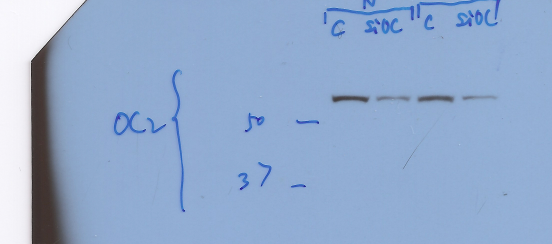 C SiOC C SiOC
OC2
50 –
37 –